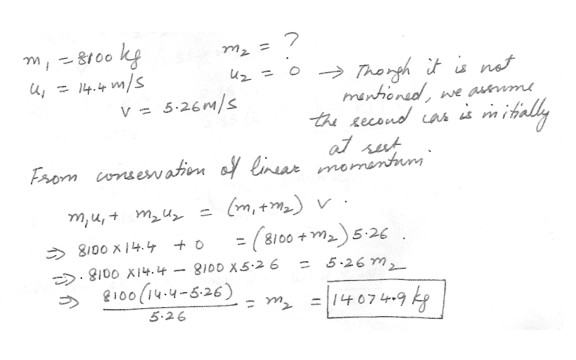 m₁ = 8100 kg   m₂ = ?
u₁ = 14.4 m/s   u₂ = 0 → Though it is not
v = 5.26 m/s   mentioned, we assume
the second car is initially
at rest
From conservation of linear momentum
m₁u₁ + m₂u₂ = (m₁+m₂) v .
⇒ 8100 X 14.4 + 0 = (8100 + m₂) 5.26 .
⇒ . 8100 X14.4 – 8100 X5.26 = 5.26 m₂
⇒ 8100 (14.4-5.26) / 5.26 = m₂ = 14074.9 kg